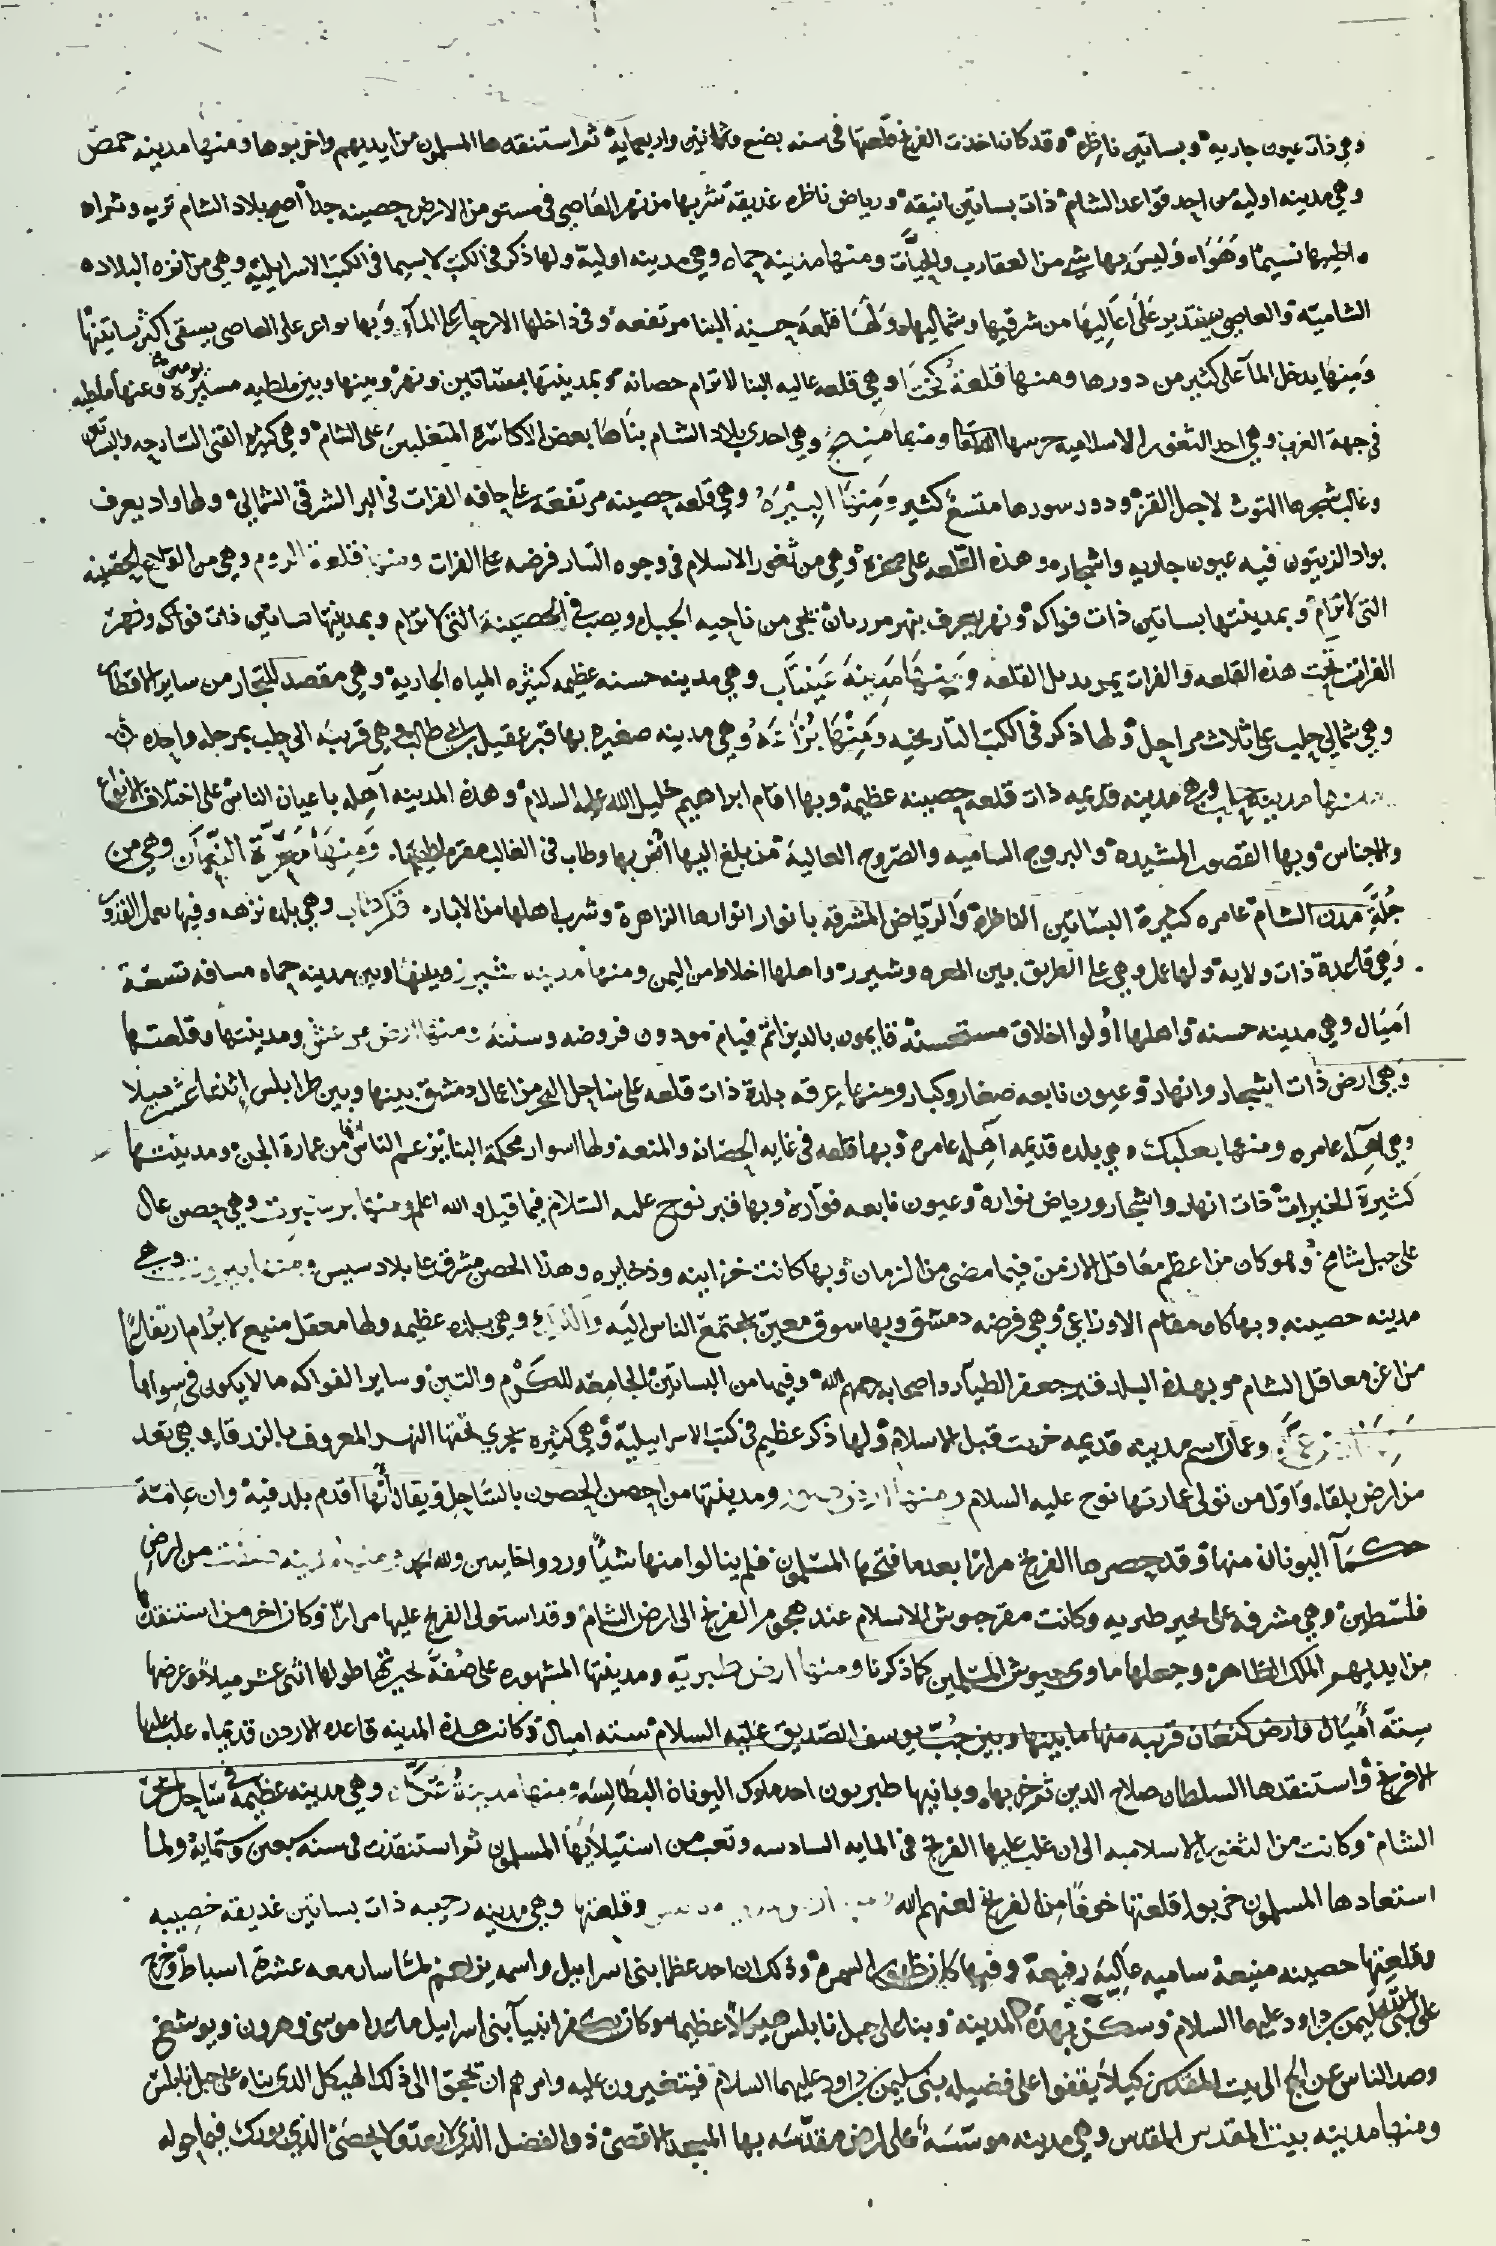 وهي ذات عيون جاريه وبساتين ناظره وقد كانا اخذت الفرنج قلعتها في سنه بضع وثمانين واربعمايه ثم استنقدها المسلمون من ايديهم واخربوها ومنها مدينه حمص
وهي مدينه اوليه من احد قواعد الشام ذات بساتين انيقه ورياض ناظره غديقه شربها من نهر العاصي في مستو من الارض حصينه جدا اصح بلاد الشام تربه وثراه
واطيبها نسيما وهواء وليس بها شي من العقارب والحيات ومنها مدينه حماه وهي مدينه اوليه ولها ذكر في الكتب لا سيما في الكتب الاسرايليه وهي من انزه البلاده
الشاميه والعاصي يستدير على اعاليها من شرقيها وشماليها ولها قلعه حسنه البنا مرتفعه وفي داخلها الارحا على المآء وبها نواعر على العاصي يسقى اكثر بساتينها
ومنها يدخل المآ على كثير من دورها ومنها قلعة كختا وهي قلعه عاليه البنا لا ترام حصانه وبمدينتها بساتين ونهر وبينها وبين ملطيه مسيرة يومين وعنها ملطيه
في جهة الغرب وهي احد الثغور الاسلاميه حرسها الله تعالى ومنها منبج وهي احدى بلاد الشام بناها بعض الاكاسره المتغلبين على الشام وهي كثيره القنى السارحه والبساتين
وغالب شجرها التوت لاجل القز ودور سورها متسع كثير ومنها البيره وهي قلعه حصينه مرتفعه على حافه الفرات في البر الشرقي الشمالي ولها واد يعرف
بواد الزيتون فيه عيون جاريه واشجاره وهذه القلعه على صخره وهي من ثغور الاسلام في وجوه التتار فرضه على الفرات ومنها قلعة الروم وهي من القلاع الحصينه
التي لا ترام وبمدينتها بساتين ذات فواكه ونهر يعرف بنهر مرزبان تجي من ناحيه الجبل ويصب في الحصينه التي لا ترام وبمدينتها بساتين ذات فواكه ونهر
الفرات تحت هذه القلعه والفرات يمر بديل القلعه ومنها مدينة عينتاب وهي مدينه حسنه عظيمه كثيره المياه الجاريه وهي مقصد للتجار من ساير الاقطار
وهي شمالي حلب على ثلاث مراحل ولها ذكر في الكتب التاريخيه ومنها بزاعه وهي مدينه صغيره بها قبر عقيل بن ابي طالب وهي قريبه الى حلب بمرحله واحده
ومنها مدينة حلب وهي مدينه قديمه ذات قلعه حصينه عظيمه وبها اقام ابراهيم خليل الله عليه السلام وهذه المدينه آهله باعيان الناس على اختلاف الانواع
والاجناس وبها القصور المشيده والبروج الساميه والصروح العاليه من بلغ اليها انس بها وطاب في الغالب مقره لطيبها ومنها معرة النعمان وهي من
جلة مدن الشام عامره كثيرة البساتين الناظرة والرياض المشرقه بانوار انوارها الزاهرة وشرب اهلها من الابار كفر طاب وهي بلده نزهه وفيها يعمل القدور
وهي قاعدة ذات ولايه ولها عمل وهي على الطريق بين المعره وشيزر واهلها اخلاط من اليمن ومنها مدينه شيزر وبينها وبين مدينه حماه مسافه تسعة
اميال وهي مدينه حسنه واهلها اولوا اخلاق مستحسنة قايمون بالدين اتم قيام مودون فروضه وسننه ومنها ارض مرعش ومدينتها وقلعتها
وهي ارض ذات اشجار وانهار وعيون نابعه صغار وكبار ومنها عرقه بلدة ذات قلعه على ساحل البحر من اعمال دمشق بينها وبين طرابلس اثنا عشر ميلا
وهي اهله عامره ومنها بعلبك وهي بلده قديمه آهله عامره وبها قلعه في غايه الحصانه والمنعه ولها اسوار محكمة البنا تزعم الناس انها من عمارة الجن ومدينتها
كثيرة الخيرات ذات انهار واشجار ورياض نواره وعيون نابعه فوآره وبها قبر نوح عليه السلام فيما قيل والله اعلم ومنها برسبرت وهي حصن عال
على جبل شامخ وهو كان من اعظم معاقل الارمن فيما مضى من الزمان وبها كانت خزاينه وذخايره وهذا الحصن مشرف على بلاد سيس ومنها بيروت وهي
مدينه حصينه وبها كان مقام الاوزاعي وهي فرضه دمشق وبها سوق معين تجتمع الناس اليه والكرك وهي بلده عظيمه ولها معقل منيع لا يرام ارتفاعا
من اعز معاقل الشام وبهذه البلد قبر جعفر الطيار واصحابه رحمهم الله وفيها من البساتين الجامعه للكرم والتين وساير الفواكه ما لا يكون في سواها
وعمان اسم مدينه قديمه خربت قبل الاسلام ولها ذكر عظيم في كتب الاسرايليه وهي كثيره تجري تحتها النهر المعروف بالزرقاء وهي تعد
من ارض بلقاء واول من تولى عمارتها نوح عليه السلام ومنها ومدينتها من احصن الحصون بالساحل ويقال انها اقدم بلد فيه وان عامة
حكمآ اليونان منها وقد حصرها الفرنج مرارا بعد ما فتحها المسلمون فلم ينالوا منها شيا وردوا خايبين ولله الحمد ومنها مدينه صفت من ارض
فلسطين وهي مشرفه على بحير طبريه وكانت مقر جيوش الاسلام عند هجوم الفرنج الى ارض الشام وقد استولى الفرنج عليها مرارا وكان اخر من استنقذها
من ايديهم الملك الظاهر وجعلها ماوى جيوش المسلمين كما ذكرنا ومنها ارض طبريه ومدينتها المشهوره على ضفة بحيرتها طولها اثنى عشر ميلا وعرضها
ستة اميال وارض كنعان قريبه منها ما بينها وبين جب يوسف الصديق عليه السلام سته اميال وكانت هذه المدينه قاعده الاردن قديماه غلب عليها
الافرنج واستنقدها السلطان صلاح الدين ثم خربها وبانيها طبريون احد ملوك اليونان البطالسه ومنها مدينة عكا وهي مدينه عظيمه في ساحل بحر
الشام وكانت من الثغور الاسلاميه الى ان غلب عليها الفرنج في المايه السادسه وتعب من استيلايها المسلمون ثم استنقذت في سنه سبعين وستمايه ولما
استعادها المسلمون خربوا قلعتها خوفا من الفرنج لعنهم الله وقلعتها وهي مدينه رحيبه ذات بساتين غديقه خصيبه
وقلعتها حصينه منيعة ساميه عالية رفيعة وفيها كان ظهور السمره وذلك ان احد عظما بنى اسرايل واسمه يربعم لما سار معه عشرة اسباط وخرج
على سليمن بن داود عليهما السلام وسكن بهذه المدينه وبنا على جبل نابلس هيكلا عظيما وكان يكفر انبيآ بنى اسرايل ما عدا موسى وهرون ويوشع
وصد الناس عن الحج الى بيت المقدس كيلا يقفوا على فضيله بنى سليمن بن داود عليهما السلام فيتغيرون عليه وامرهم ان تحجوا الى ذلك الهيكل الذي بناه على جبل نابلس
ومنها مدينه بيت المقدس المقدس وهي مدينه موسسه على ارض مقدسه بها المسجد الاقصى ذو الفضل الذي لا يعد ولا يحصى الذي بورك فيما حوله